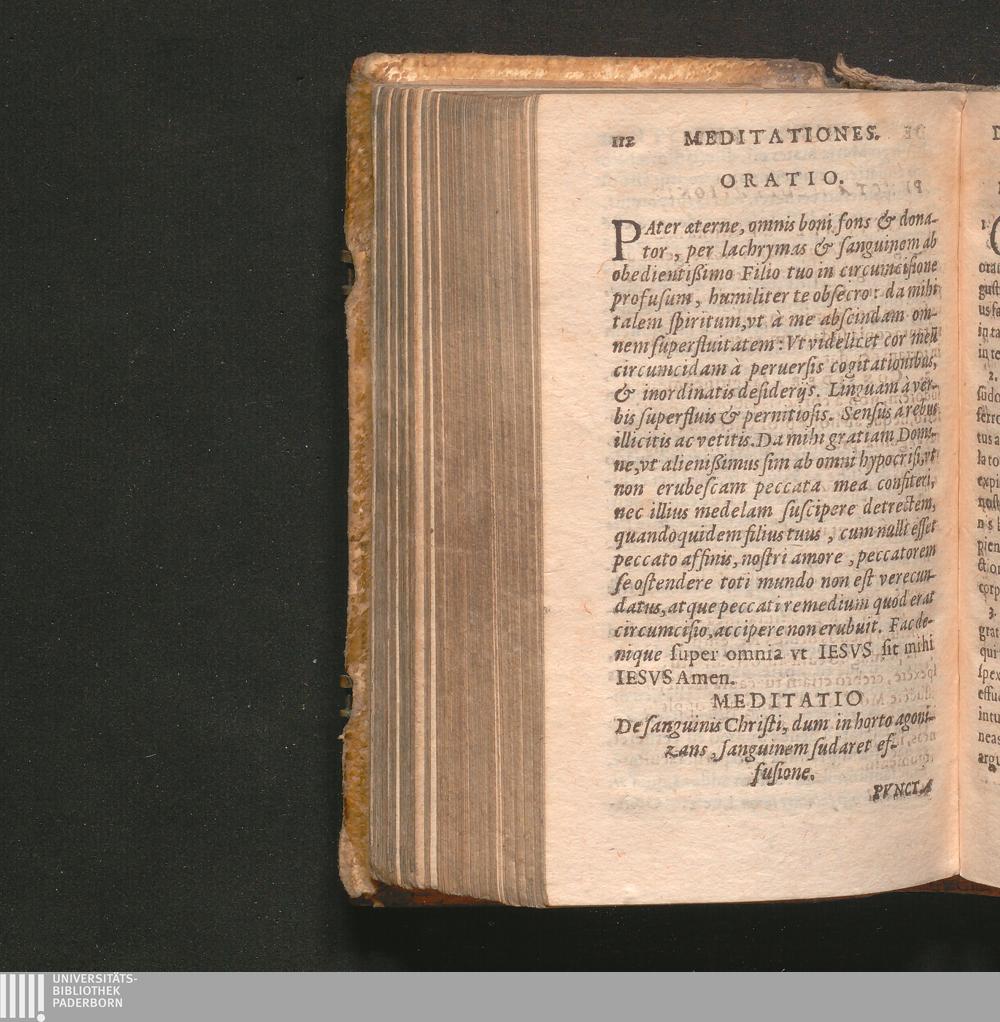 112 MEDITATIONES.
ORATIO.
PAter æterne, omnis boni fons & dona-
tor, per lachrymas & ſanguinem ab
obedientißimo Filio tuo in circumciſione
profuſum, humiliter te obſecro: da mihi
talem ſpiritum, vt à me abſcindam om-
nem ſuperfluitatem: Vt videlicet cor meū
circumcidam à peruerſis cogitationibus,
& inordinatis deſiderijs. Linguam à ver-
bis ſuperfluis & pernitioſis. Senſus à rebus
illicitis ac vetitis. Da mihi gratiam Domi-
ne, vt alienißimus ſim ab omni hypocriſi, vt
non erubeſcam peccata mea confiteri,
nec illius medelam ſuſcipere detrectem,
quandoquidem filius tuus, cum nulli eſſet
peccato affinis, noſtri amore, peccatorem
ſe oſtendere toti mundo non eſt verecun-
datus, atque peccati remedium quod erat
circumciſio, accipere non erubuit. Fac de-
nique ſuper omnia vt IESVS ſit mihi
IESVS Amen.
MEDITATIO
De ſanguinis Chriſti, dum in horto agoni-
zans, ſanguinem ſudaret ef-
fuſione.
PVNCTA
UNIVERSITÄTS-
BIBLIOTHEK
PADERBORN